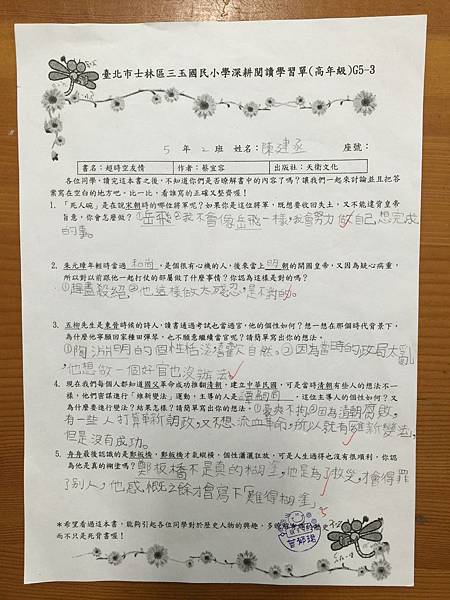 臺北市士林區三玉國民小學深耕閱讀學習單(高年級)G5-3
5 年 2 班 姓名：陳建丞 座號：
書名：超時空友情 作者：蔡宜容 出版社：天衛文化
各位同學，讀完這本書之後，不知道你們是否瞭解書中的內容了嗎？讓我們一起來討論並且把答
案寫在空白的地方吧，比一比，看誰寫的正確又整齊喔！
1. 「死人碗」是在說宋朝時的哪位將軍呢？如果你是這位將軍，既想要收回失土，又不能違背皇帝
旨意，你會怎麼做？①岳飛②我不會像岳飛一樣，我會努力做自己想完成
的事。
2. 朱元璋年輕時當過 和尚，是個很有心機的人，後來當上 明 朝的開國皇帝，又因為疑心病重，
所以對以前跟他一起打仗的部屬做了什麼事情？你認為這樣是對的嗎？
①趕盡殺絕②他這樣做太殘忍，是不對的。
3. 五柳先生是東晉時候的詩人，讀書通過考試也當過官，他的個性如何？想一想在那個時代背景下，
為什麼他寧願回家種田彈琴，也不願意繼續當官呢？請簡單寫出你的想法。
①陶淵明的個性恬淡喜歡自然。②因為當時的政局大亂，
他想做一個好官也沒辦法。
4. 現在我們每個人都知道國父革命成功推翻清朝，建立中華民國，可是當時清朝有些人的想法不一
樣，他們密謀進行「維新變法」運動，主導的人是 譚嗣同，這位主導人的個性如何？又
為什麼要進行變法？結果怎樣？請簡單寫出你的想法。①豪爽不拘②因為清朝腐敗，
有一些人打算革新朝政，又不想流血革命，所以就有維新變法，
但是沒有成功。
5. 舟舟最後認識的是鄭板橋，鄭板橋才氣縱橫，個性瀟灑狂放，可是人生過得也沒有很順利，你認
為他是真的糊塗嗎？鄭板橋不是真的糊塗，他是為了救災，才會得罪
了別人，他感慨之餘才會寫下「難得糊塗」
*希望看過這本書，能夠引起各位同學對於歷史人物的興趣，多
而不只是死背書喔！